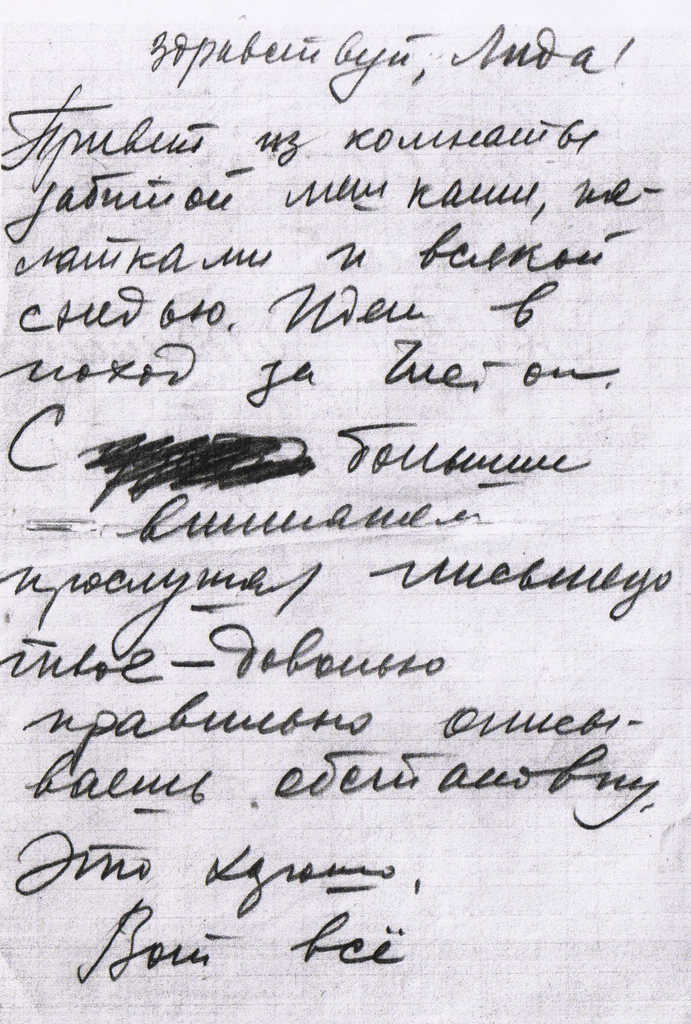 Здравствуй, Лида!
Привет из комнаты
забитой мешками, па-
латками и всякой
снедью. Идем в
поход за
С большим
вниманием
прослушал письмецо
твое – довольно
правильно описы-
ваешь обстановку.
Это хорошо.
Вот всё